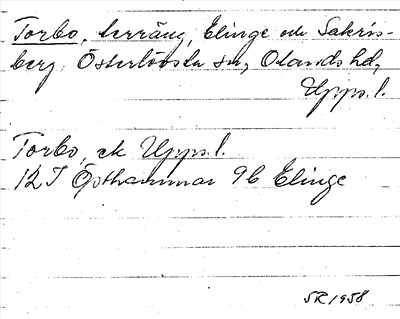 Torbo, terräng, Elinge och Sakris-
berg, Österlövsta sn, Olands hd,
Upps. l.
Torbo, ek Upps. l.
12I Östhammar 9b Elinge
SR 1958